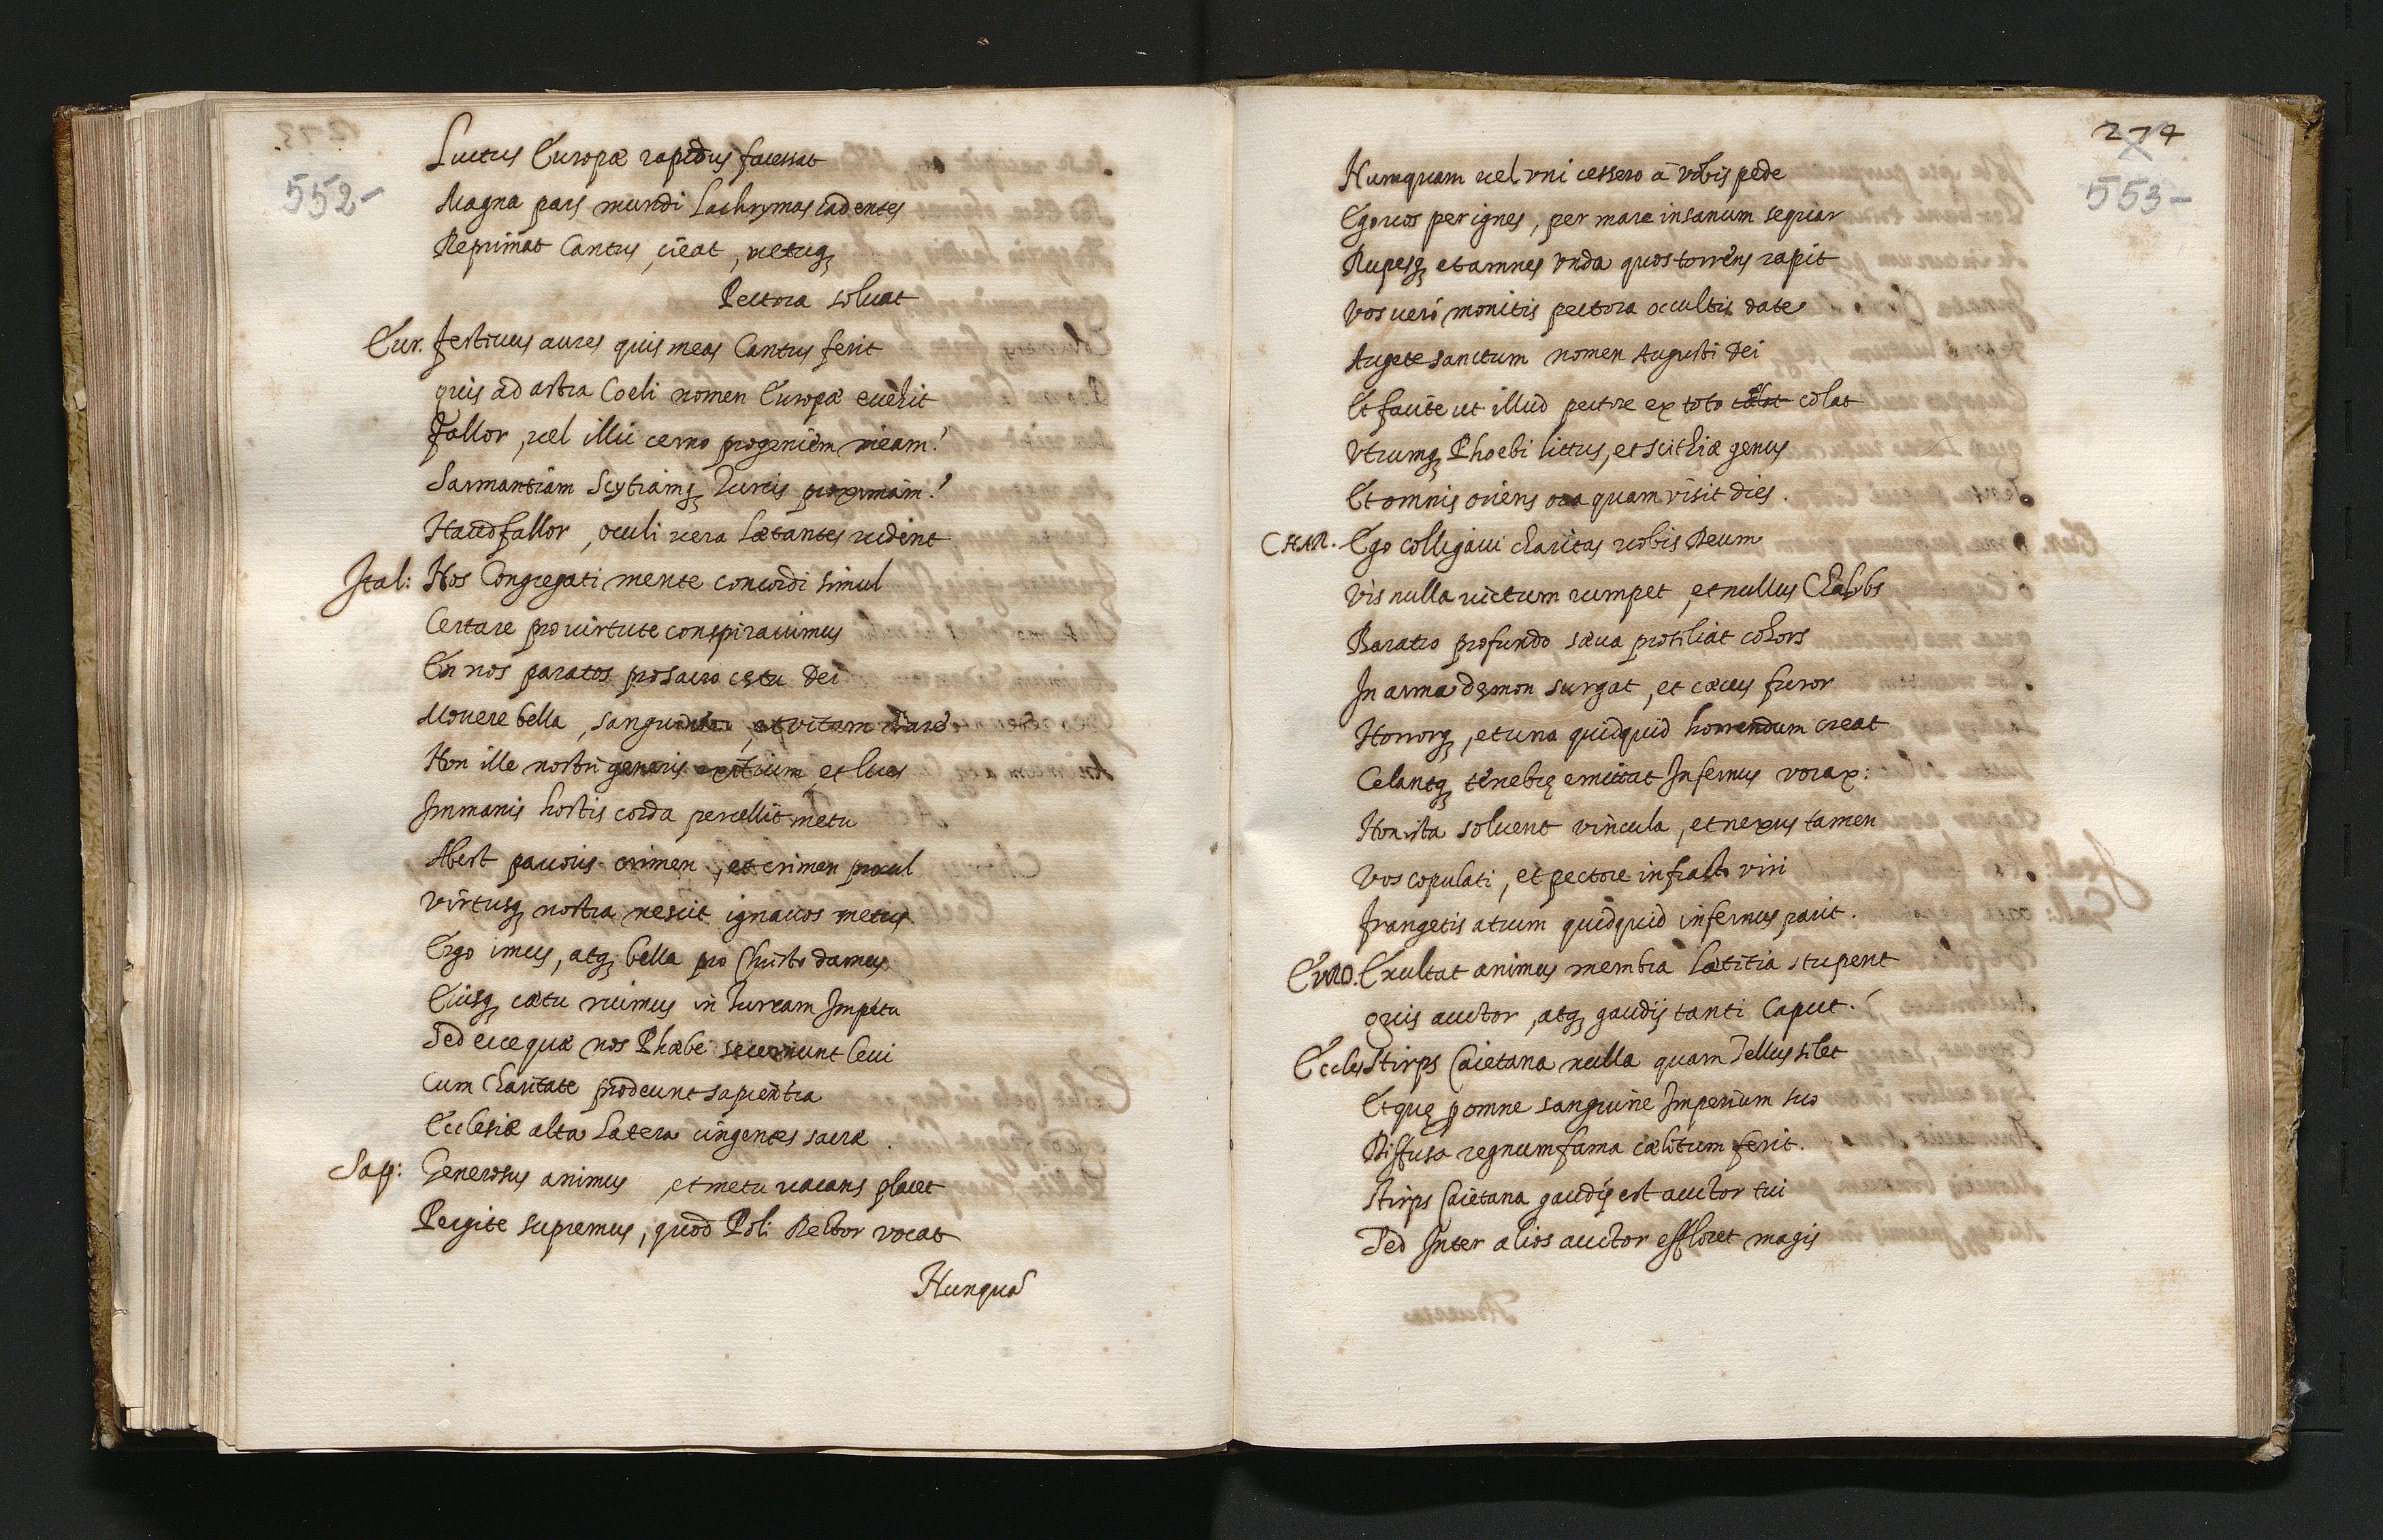 552-
Luctus Europæ rapidus facessat
Magna pars mundi Lachrymas cadentes
Reprimat Cantus, cieat, metuq;
Pectora soluat
Eur. festiuus aures quis meas Cantus ferit
quis ad astra Coeli nomen Europæ euehit
Fallor, uel illic cerno progeniem meam?
Sarmantiam Scytiamq; Turcis proximam?
Haud fallor, oculi uera Lætantes uident
Ital: Nos Congregati mente concordi simul
Certare pro uirtute conspirauimus
En nos paratos pro sacro cętu Dei
Mouere bella, sanguinem, et vitam dare
Non ille nostri generis exitium, et lues
Immanis hostis corda percellit metu
Abest pauoris crimen, et crimen procul
Virtusq; nostra nescit ignauos metus
Ergo imus, atq; bella pro Christo damus
Eiusq; cætu ruimus in Turcam Impetu
Sed ecce quæ nos Phæbe secernunt leui
Cum Charitate prodeunt sapientia
Ecclesiæ alta Latera cingentes sacræ.
Sap: Generosus animus, et metu uacans placet
Pergite supremus, quod Poli Rector vocat
Nunquã
274
553-
Numquam uel uni cessero à vobis pede
Ego uos per ignes, per mare insanum sequar
Rupesq; et amnes vnda quos torrens rapit
Vos uerò monitis pectora occultis date
Augete sanctum nomen Augusti Dei
Et facite ut illud pectore ex toto colat
Vtrumq; Phoebi littus, et scithiæ genus
Et omnis oriens ora quam visit dies.
CHAR. Ego colligaui charitas uobis Deum
Vis nulla uictum rumpet, et nullus Chalybs
Baratro profundo, sæua prosiliat cohors
In arma dęmon surgat, et cæcus furor
Horrorq;, et una quidquid horrendum creat
Celantq; tenebrę emittat Infernus vorax:
Non ista soluent vincula, et nexus tamen
Vos copulati, et pectore infracto viri
frangetis atrum quidquid infernus parit.
EVRO. Exultat animus membra Lætitia stupent
Quis auctor, atq; gaudij tanti Caput?
Eccles Stirps Caietana nulla quam Tellus silet
Et quę p omne sanguine Imperium suo
Diffusa regnum fama cælitum ferit.
Stirps Caietana gaudij est auctor tui
Sed Inter alios auctor effloret magis